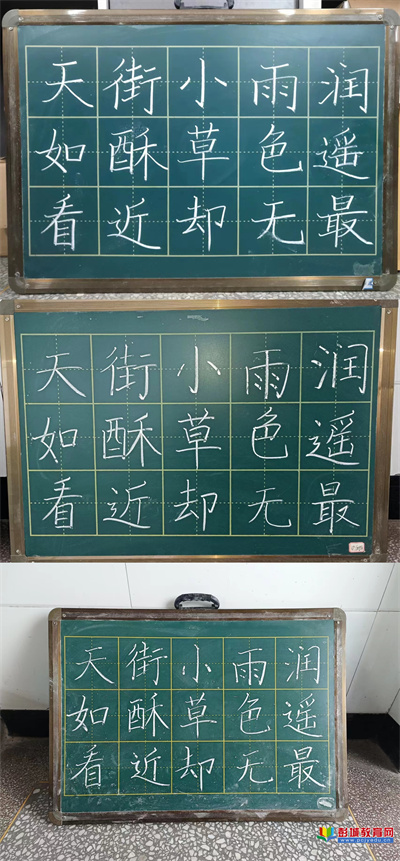 天街小雨润
如酥草色遥
看近却无最
天街小雨润
如酥草色遥
看近却无最
天街小雨润
如酥草色遥
看近却无最
彭城教育网
www.pcjyedu.cn